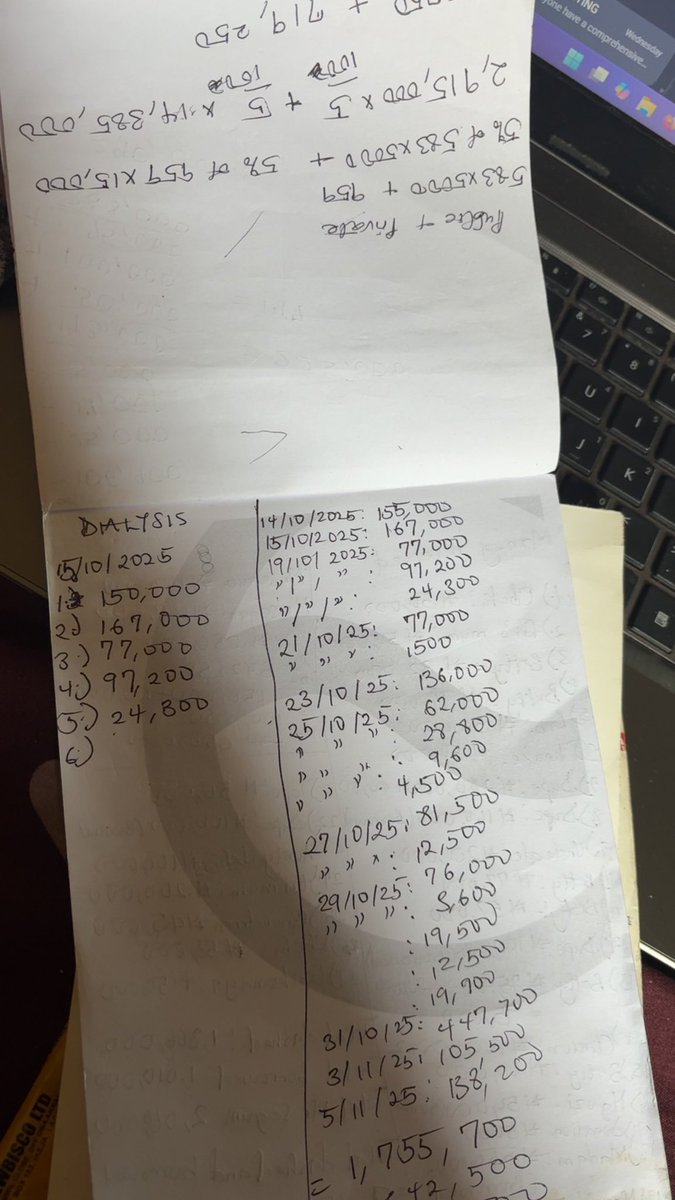 Public + Private
583x5000 + 959
5% of 583x5000 + 5% of 959 x15,000
2,915,000 x 5/100 + 5/100 x 14,385,000
+ 719,250
Wednesday
have a comprehensive...
DIALYSIS
15/10/2025
1) 150,000
2) 167,000
3) 77,000
4) 97,200
5) 24,300
6)
14/10/2025: 155,000
15/10/2025: 167,000
19/10/2025: 77,000
"/"/": 97,200
"/"/": 24,300
21/10/25: 77,000
" " ": 1500
23/10/25: 136,000
25/10/25: 62,000
" " ": 28,800
" " ": 9,600
" " ": 4,500
27/10/25: 81,500
" " ": 12,500
29/10/25: 76,000
" " ": 3,600
: 19,500
: 12,500
: 19,700
31/10/25: 447,700
3/11/25: 105,500
5/11/25: 138,200
= 1,755,700
42,500
7
8
U
I
J
K
NBISCO LTD